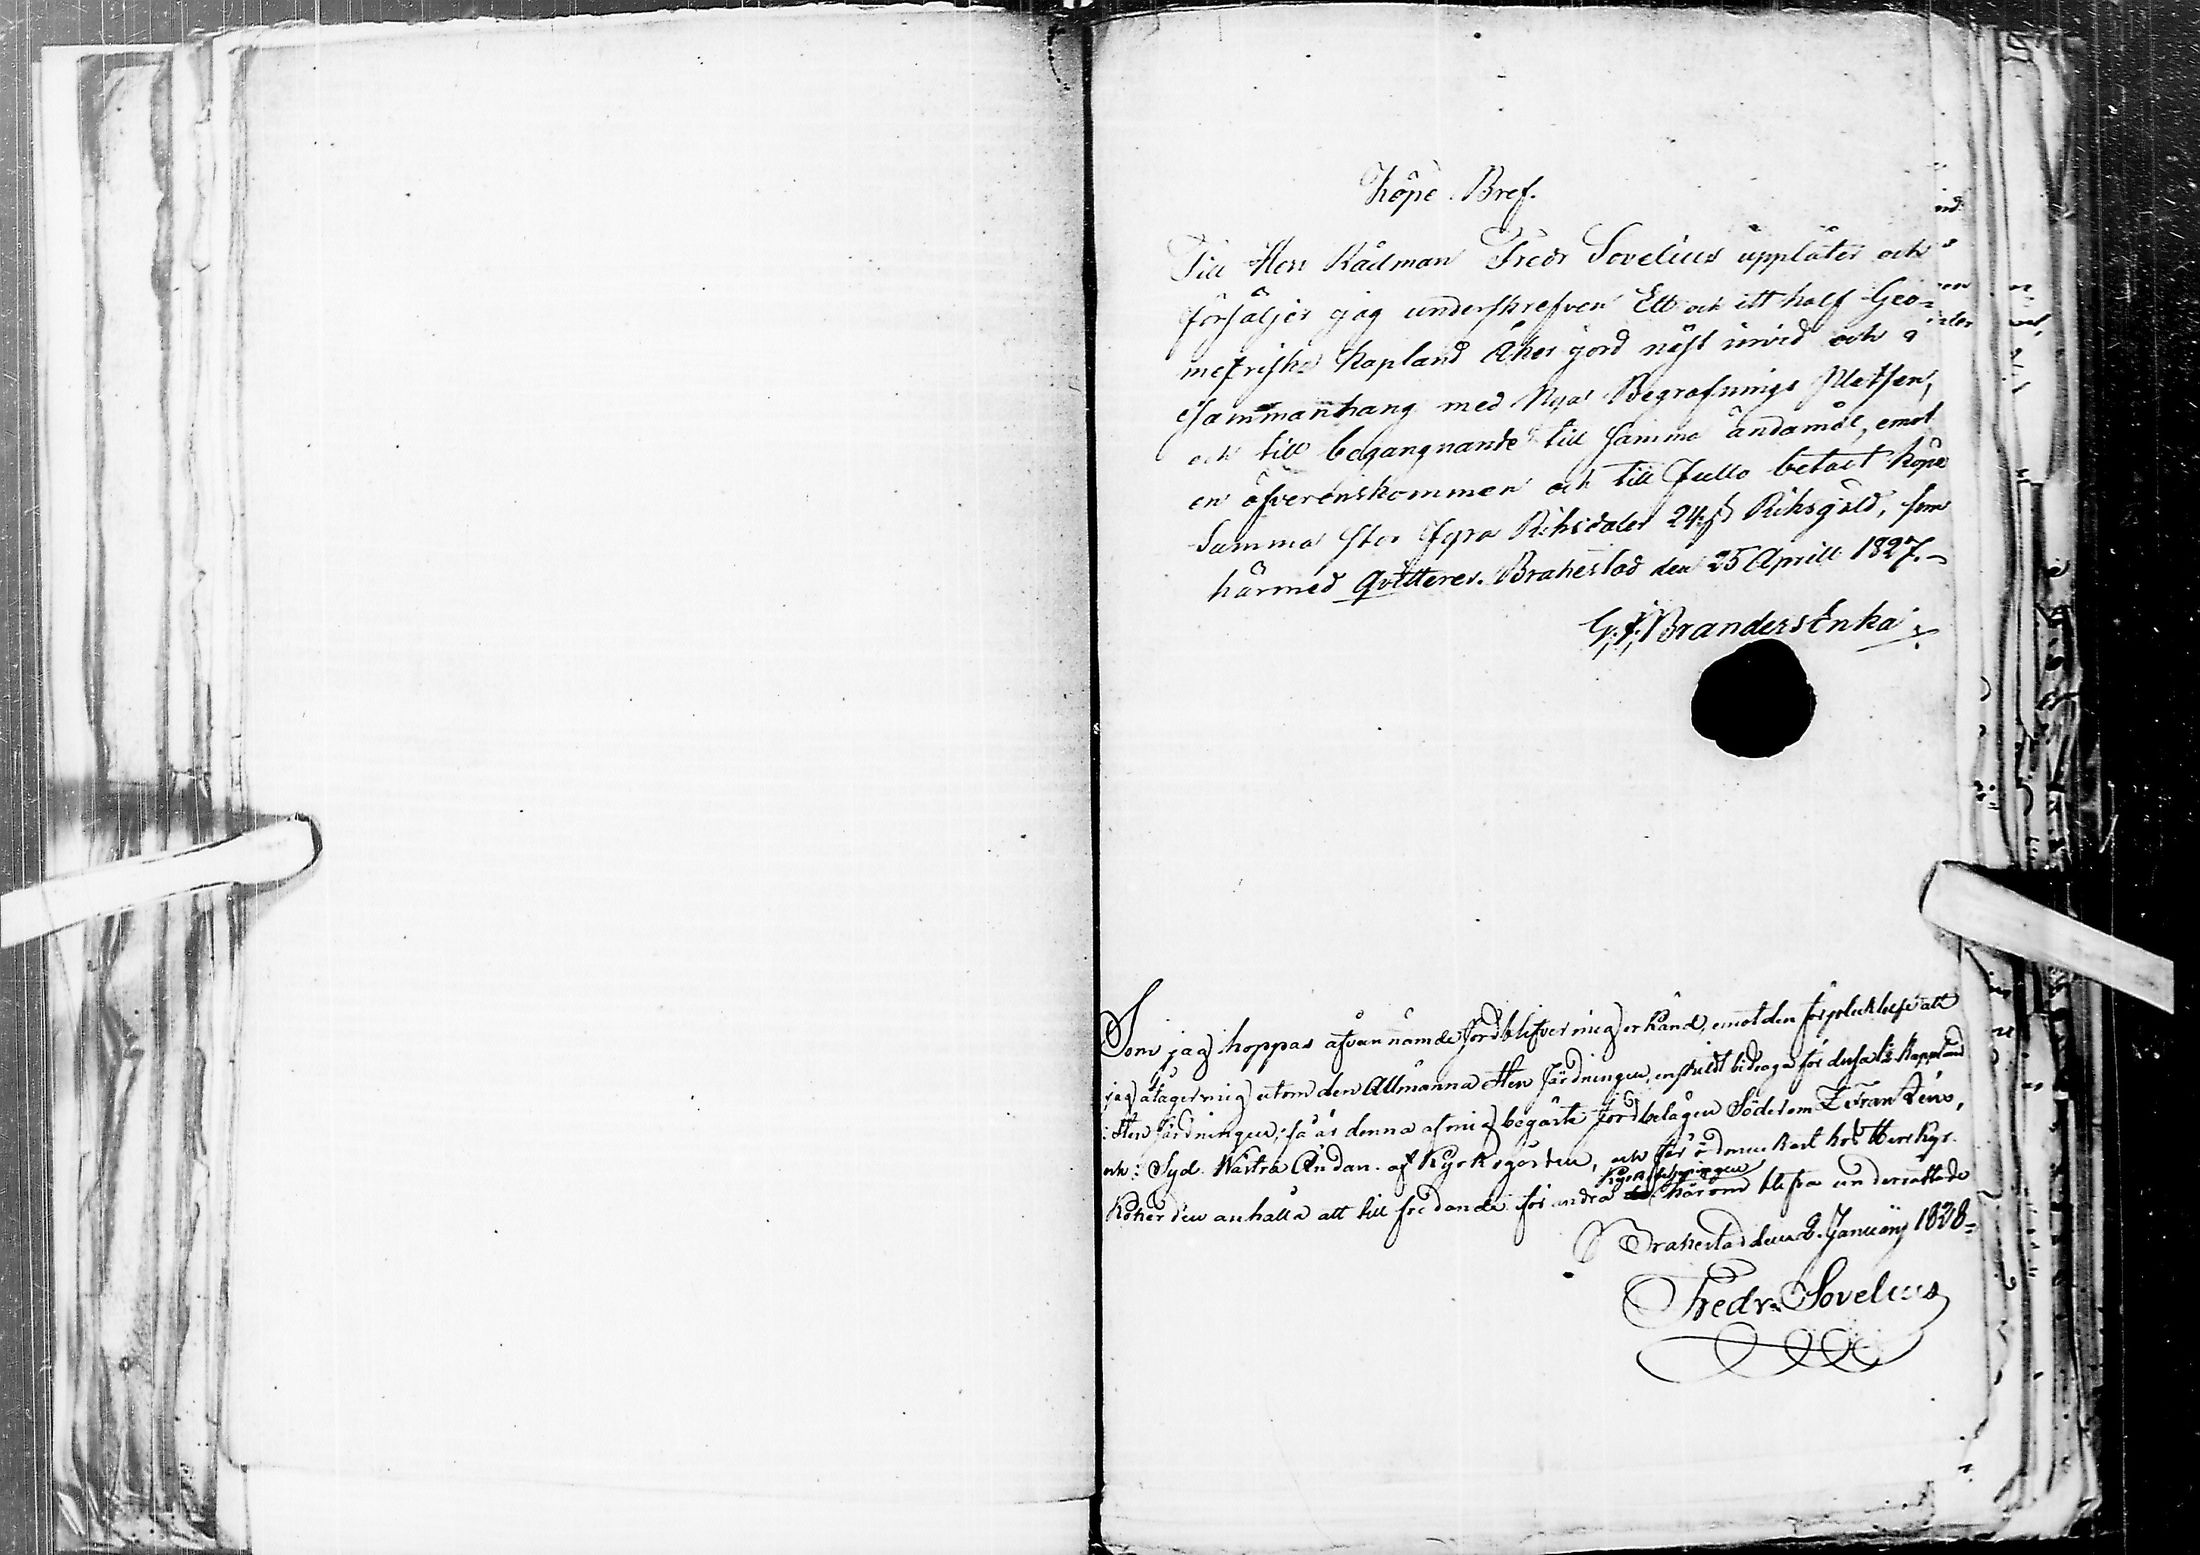 Köpe Bref.
Till Herr Rådman Fredr Sovelius upplåter och
försäljer jag underskrefven Ett och ett half Geo=
metriske Kapland Åker jord näst invid och i
sammanhang med Nya Begrafnings Platsen,
och till begagnande till samma ändamål, emot
en öfverenskommen och till fullo betalt köpe
Summa stor fyra Riksdaler 24 s Riksgäld, som
härmed qvitteres. Brahestad den 25 Aprill 1827.
G: J: Branders Enka
Som jag hoppas ofvannämde Jord blifver mig erkänd, emot den förpliktelse att
jag åtager mig utom den Allmänna Sten Färdningen, enskildt bidraga för dessa 1½ Kappland
i Sten färdningen; så är denna af mig begärte Jord belägen Söder om Z Franzéns,
och i Syd. Västra Ändan af Kyrkogården, och får ödmjukast hos Herr Kyr-
Kyrkoföreningen
koherden anhålla att till fredande för andra härom blifva underrättade
Brahestad den 2. Januarij 1828
Fredr. Sovelius